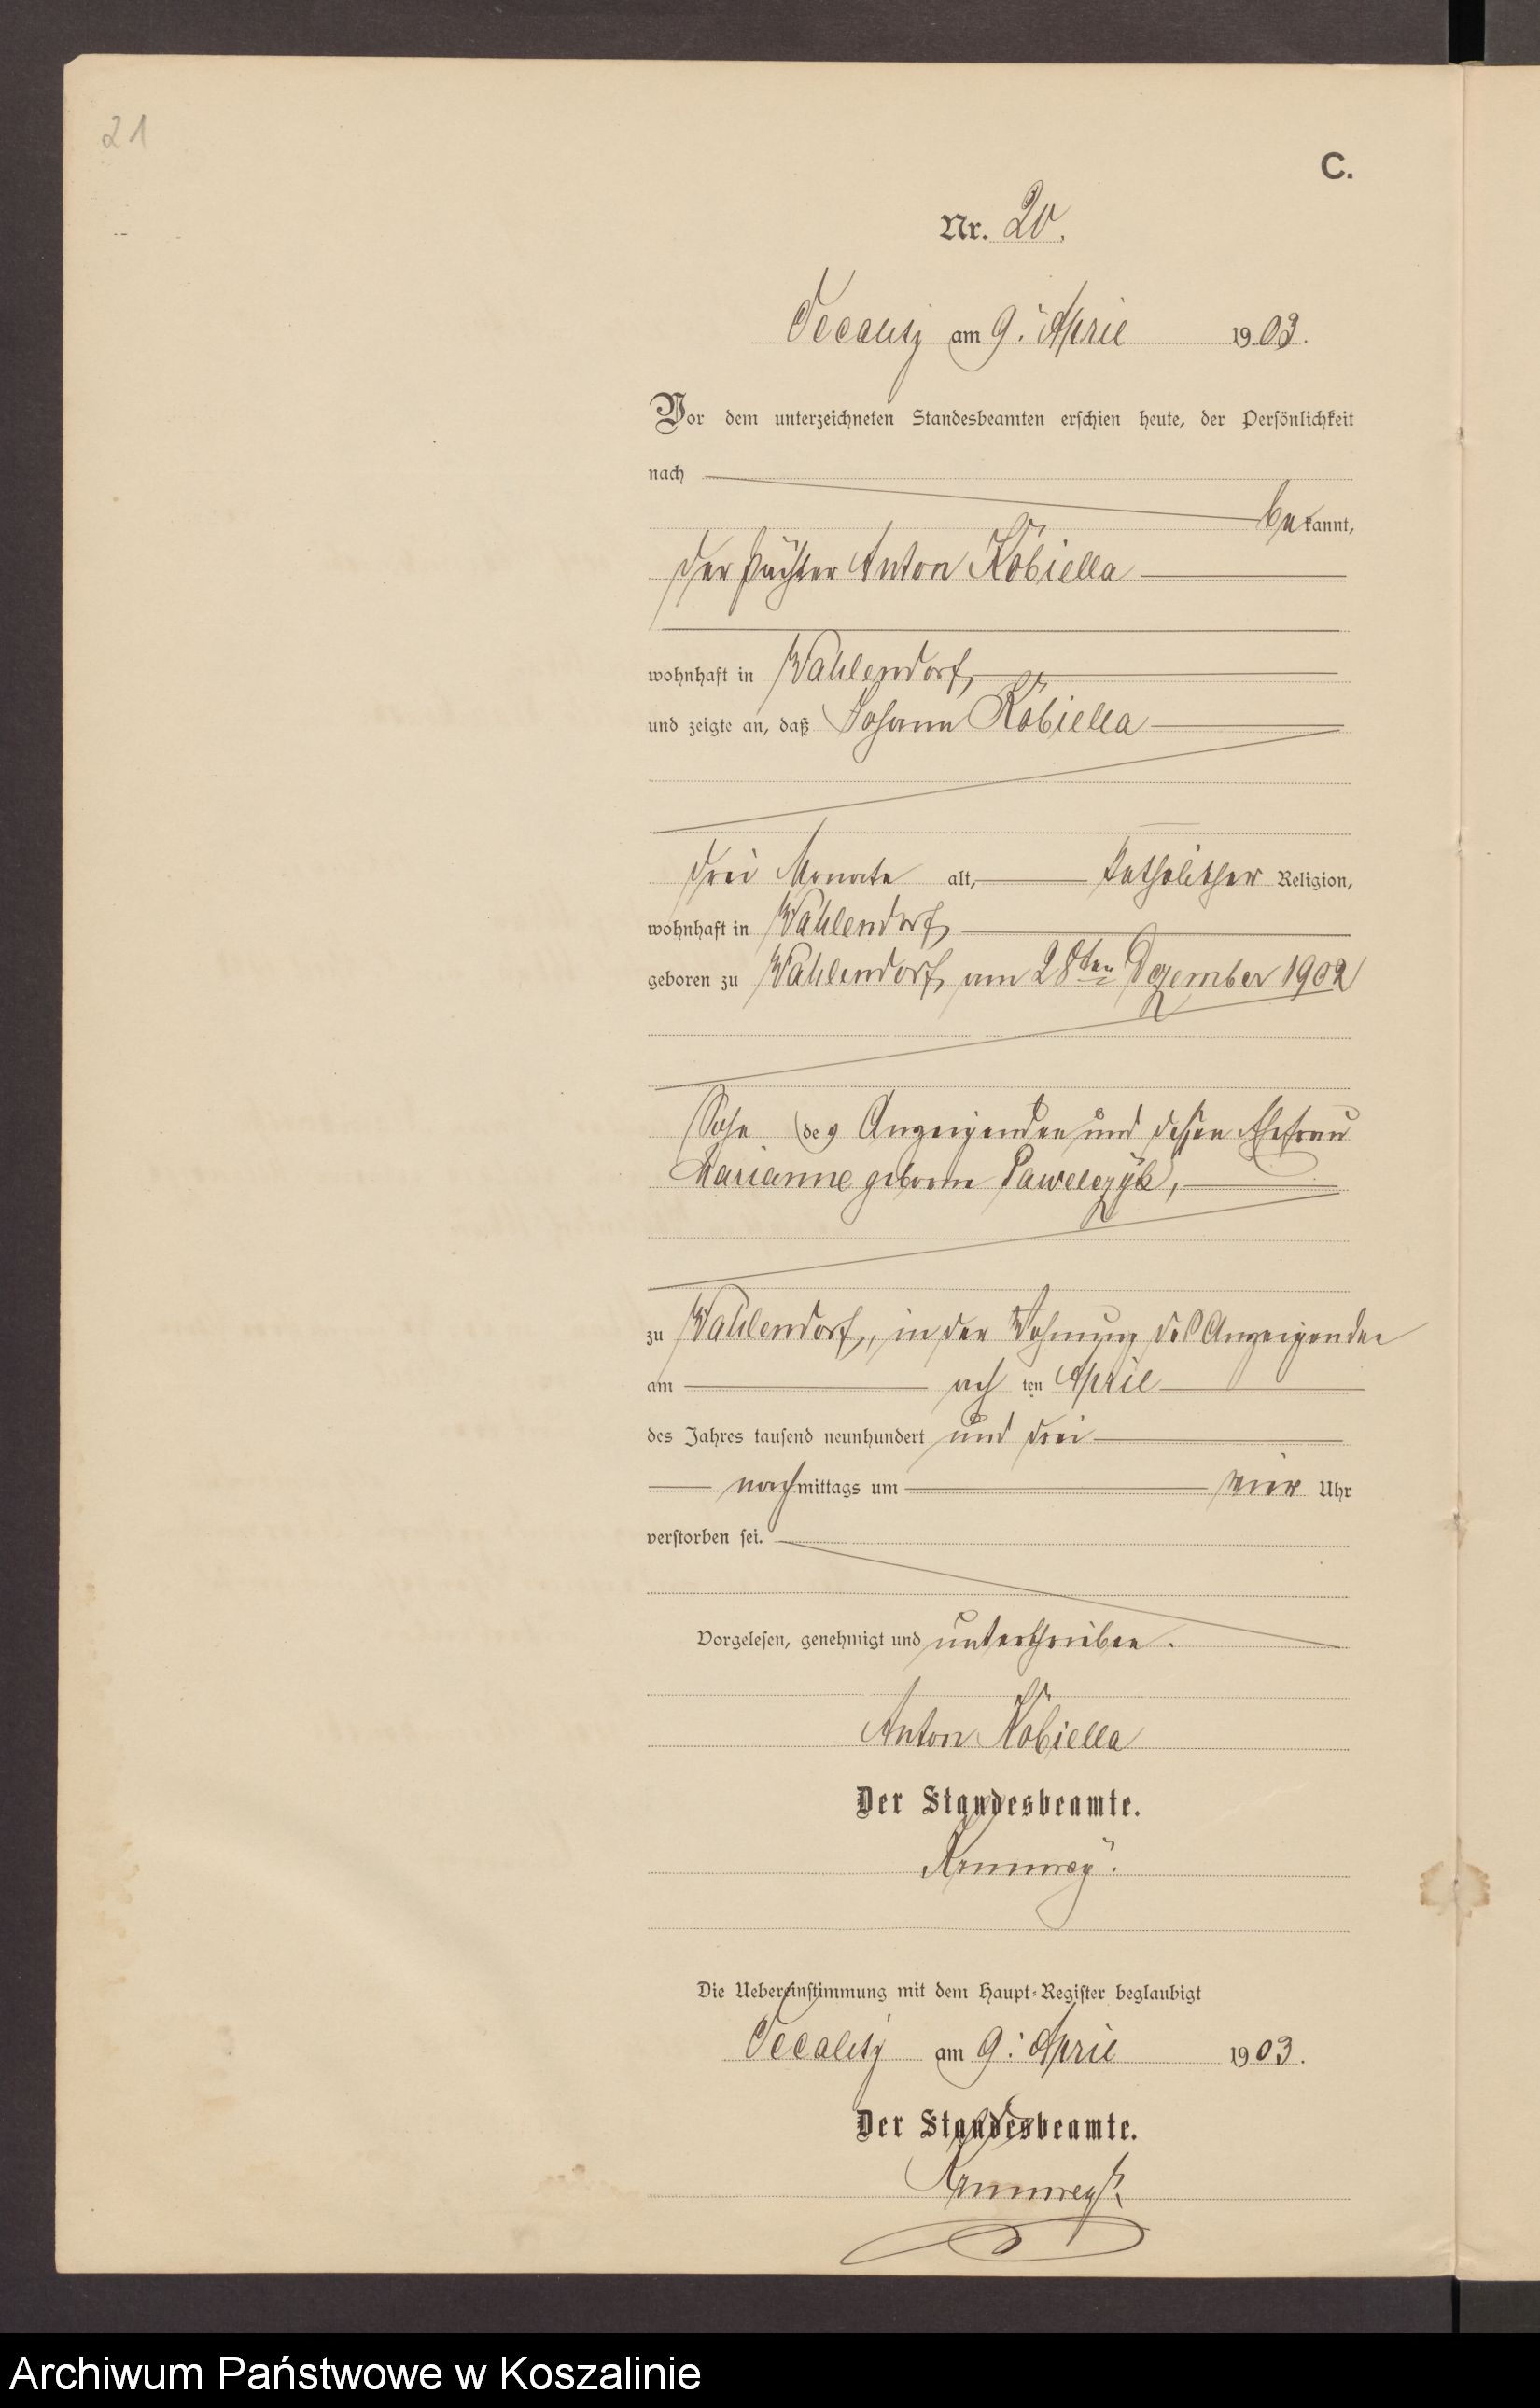 21
C.
Nr. 20.
am 9. April 1903.
Vor dem unterzeichneten Standesbeamten erschien heute, der Persönlichkeit
nach
bekannt,
der Pächter Anton Kobiella
wohnhaft in Wahlendorf,
und zeigte an, daß Johann Kobiella
drei Monate alt, katholischer Religion,
wohnhaft in Wahlendorf
geboren zu Wahlendorf, am 28ten Dezember 1902
Sohn des Anzeigenden und dessen Ehefrau
Marianne geborene Pawelczyk,
zu Wahlendorf, in der Wohnung des Anzeigenden
am achten April
des Jahres tausend neunhundert und drei
nachmittags um vier Uhr
verstorben sei.
Vorgelesen, genehmigt und unterschrieben.
Anton Kobiella
Der Standesbeamte.
Die Uebereinstimmung mit dem Haupt-Register beglaubigt
am 9. April 1903.
Der Standesbeamte.
Archiwum Państwowe w Koszalinie